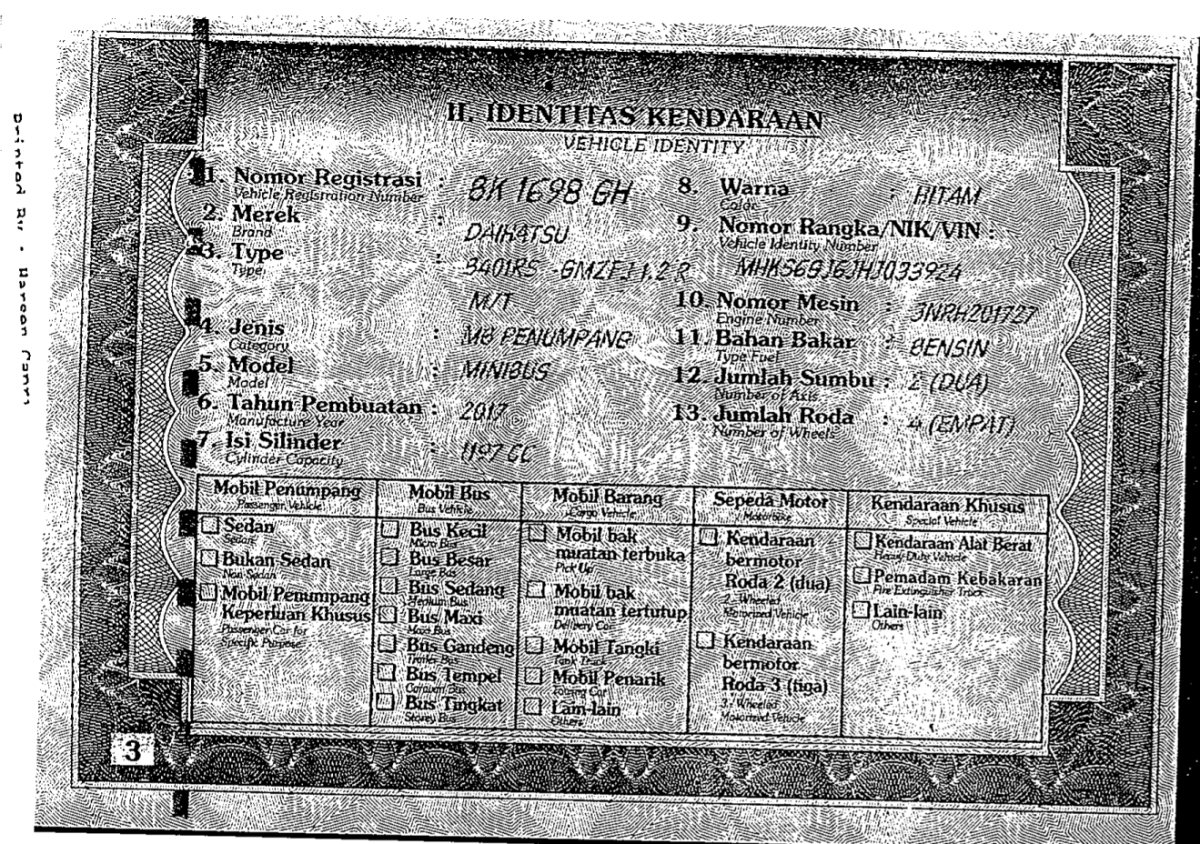 II. IDENTITAS KENDARAAN
VEHICLE IDENTITY
1. Nomor Registrasi : BK 1698 GH
Vehicle Registration Number
2. Merek : DAIHATSU
Brand
3. Type : B401RS -GMZFJ 1.2 R
Type
M/T
4. Jenis : MB PENUMPANG
Category
5. Model : MINIBUS
Model
6. Tahun Pembuatan : 2017
Manufacture Year
7. Isi Silinder : 1197 CC
Cylinder Capacity
8. Warna : HITAM
Color
9. Nomor Rangka/NIK/VIN :
Vehicle Identity Number
MHKS6GJ6JHJ033924
10. Nomor Mesin : 3NRH201727
Engine Number
11. Bahan Bakar : BENSIN
Type Fuel
12. Jumlah Sumbu : 2 (DUA)
Number of Axis
13. Jumlah Roda : 4 (EMPAT)
Number of Wheels
Mobil Penumpang
Passenger Vehicle
Sedan
Sedan
Bukan Sedan
Non Sedan
Mobil Penumpang
Keperluan Khusus
Passenger Car for
Specific Purpose
Mobil Bus
Bus Vehicle
Bus Kecil
Micro Bus
Bus Besar
Large Bus
Bus Sedang
Medium Bus
Bus Maxi
Maxi Bus
Bus Gandeng
Trailer Bus
Bus Tempel
Caravan Bus
Bus Tingkat
Storey Bus
Mobil Barang
Cargo Vehicle
Mobil bak
muatan terbuka
Pick Up
Mobil bak
muatan tertutup
Delivery Car
Mobil Tangki
Tank Truck
Mobil Penarik
Towing Car
Lain-lain
Others
Sepeda Motor
Motorbike
Kendaraan
bermotor
Roda 2 (dua)
2 - Wheeled
Motorized Vehicle
Kendaraan
bermotor
Roda 3 (tiga)
3 - Wheeled
Motorized Vehicle
Kendaraan Khusus
Special Vehicle
Kendaraan Alat Berat
Heavy Duty Vehicle
Pemadam Kebakaran
Fire Extinguisher Truck
Lain-lain
Others
3